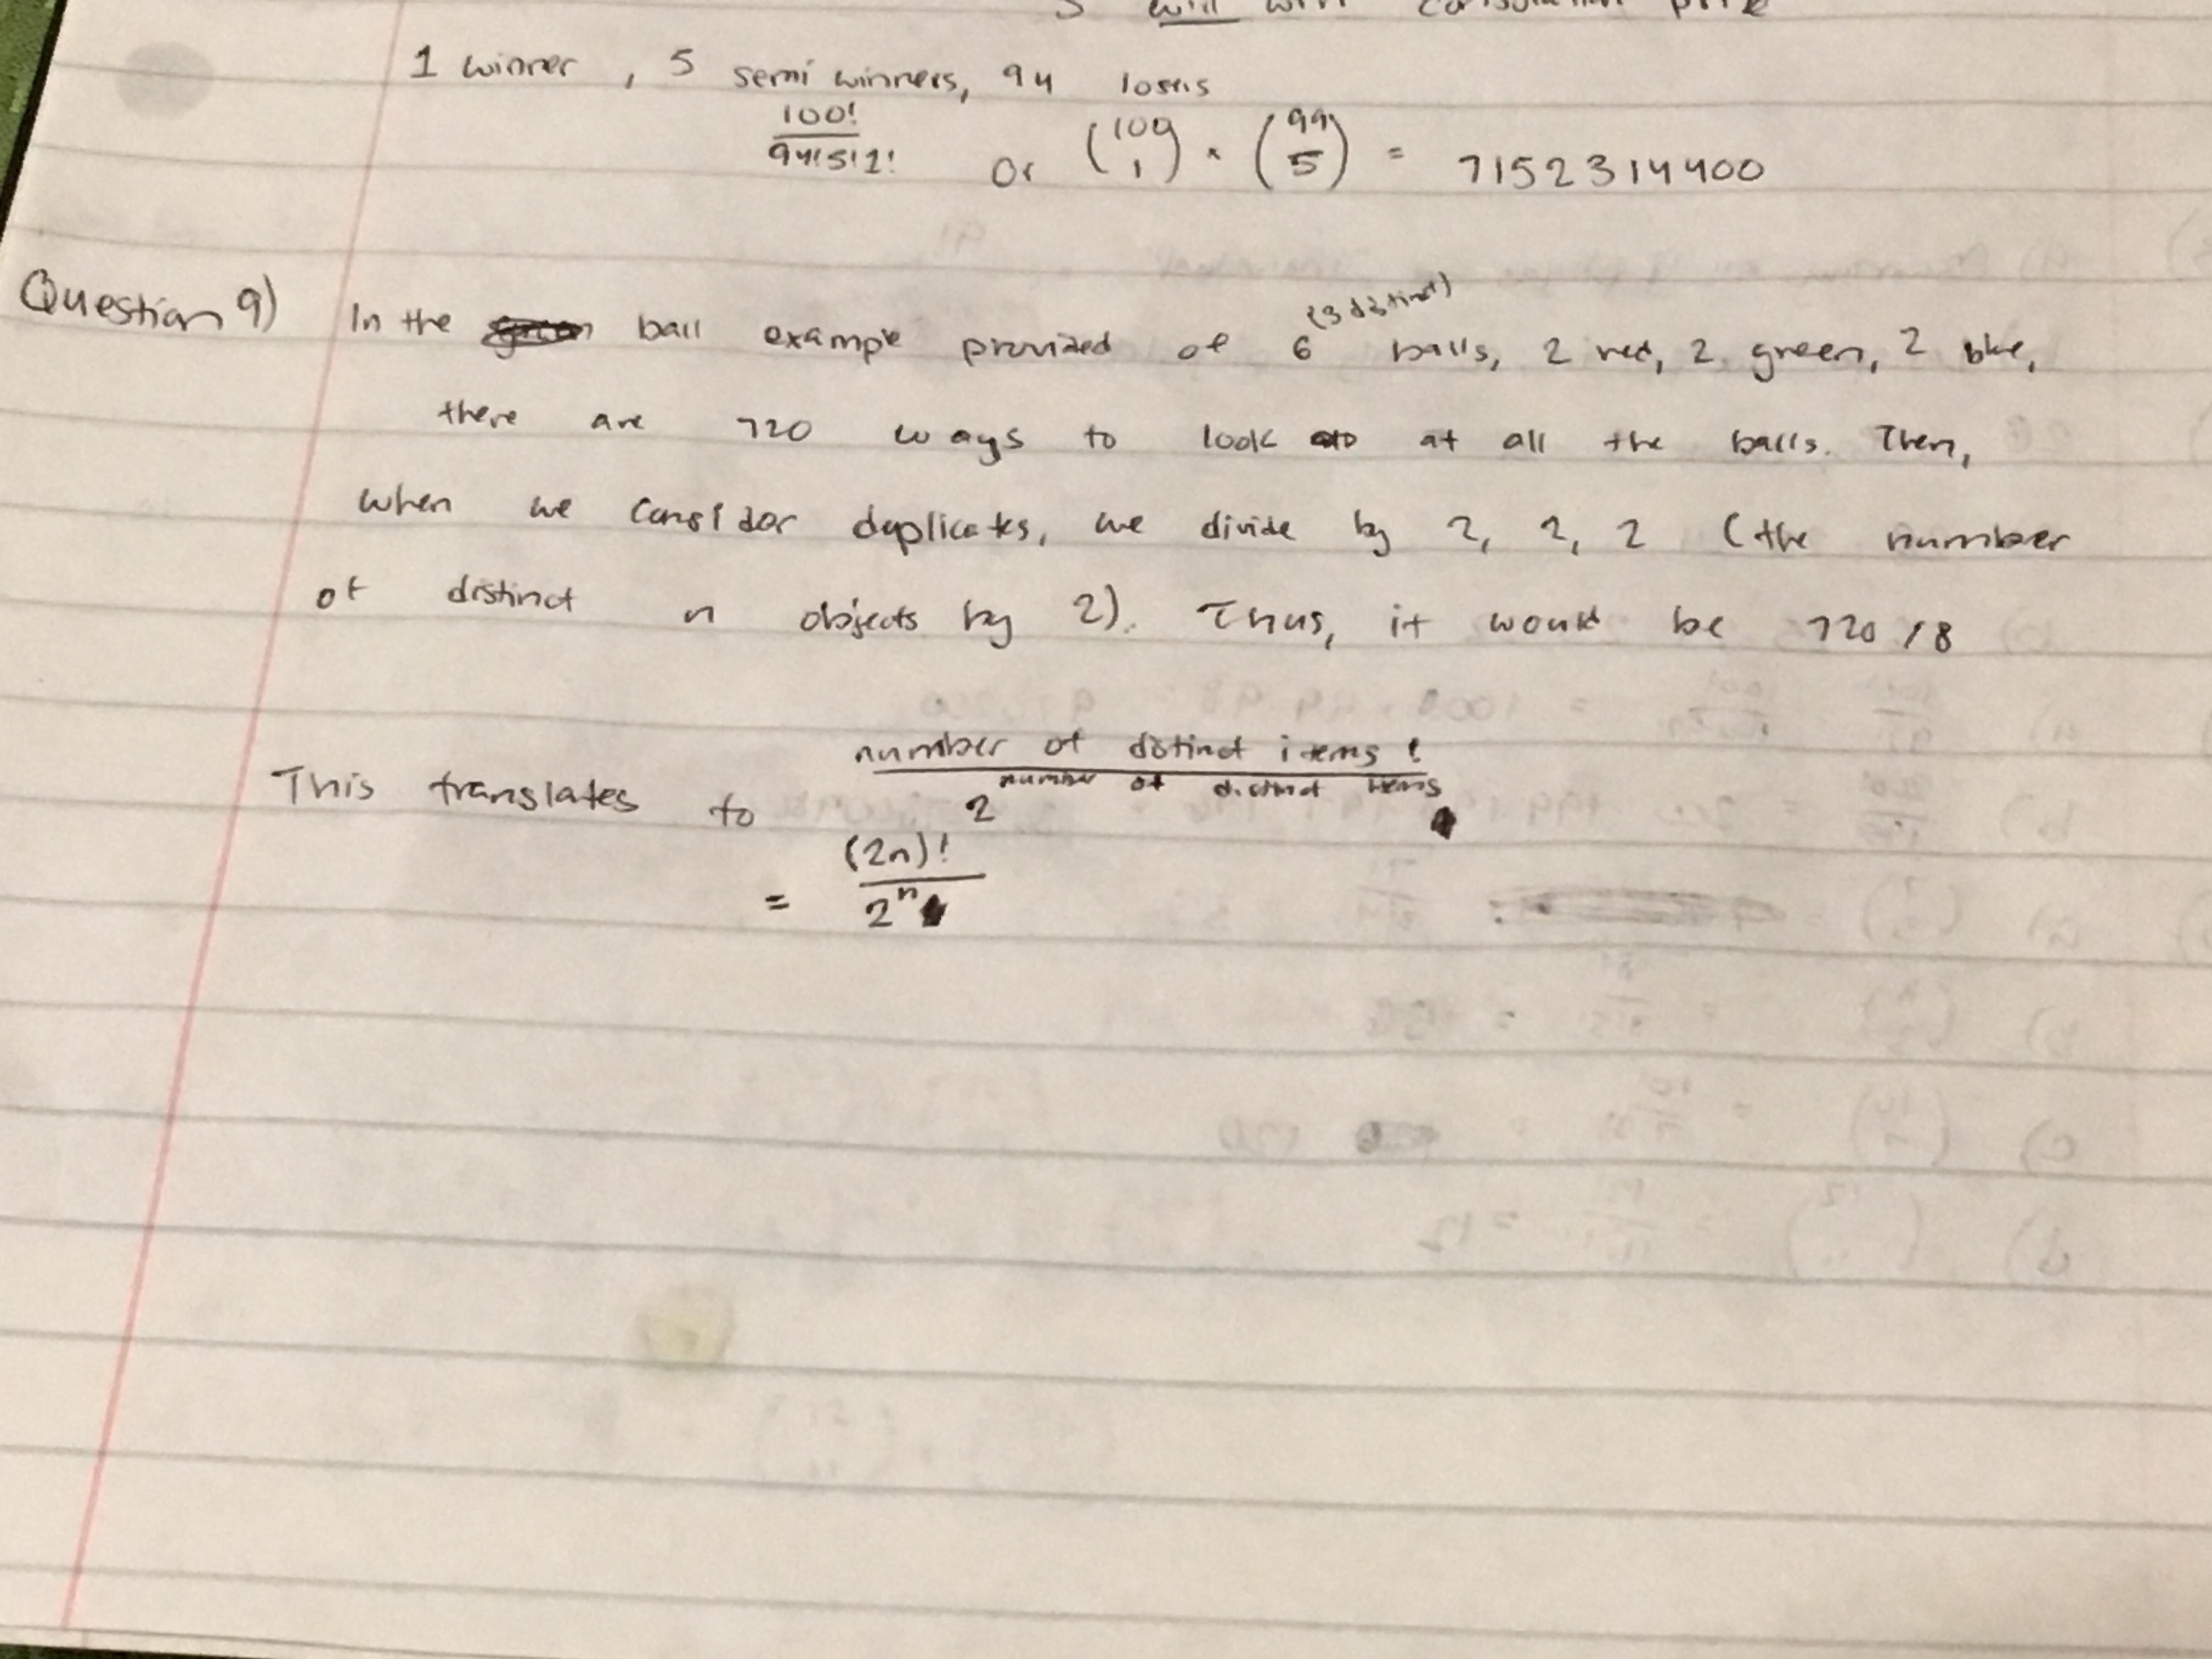 5 will win consolation prize
1 winner, 5 semi winners, 94 losers
100! / 94!5!1! Or (100 1) × (99 5) = 7152314400
Question 9) In the ball example provided of 6 (3 distinct) balls, 2 red, 2 green, 2 blue,
there are 720 ways to look at all the balls. Then,
when we consider duplicates, we divide by 2, 2, 2 (the number
of distinct n objects by 2). Thus, it would be 720/8
This translates to number of distinct items! / 2^number of distinct items
= (2n)! / 2^n